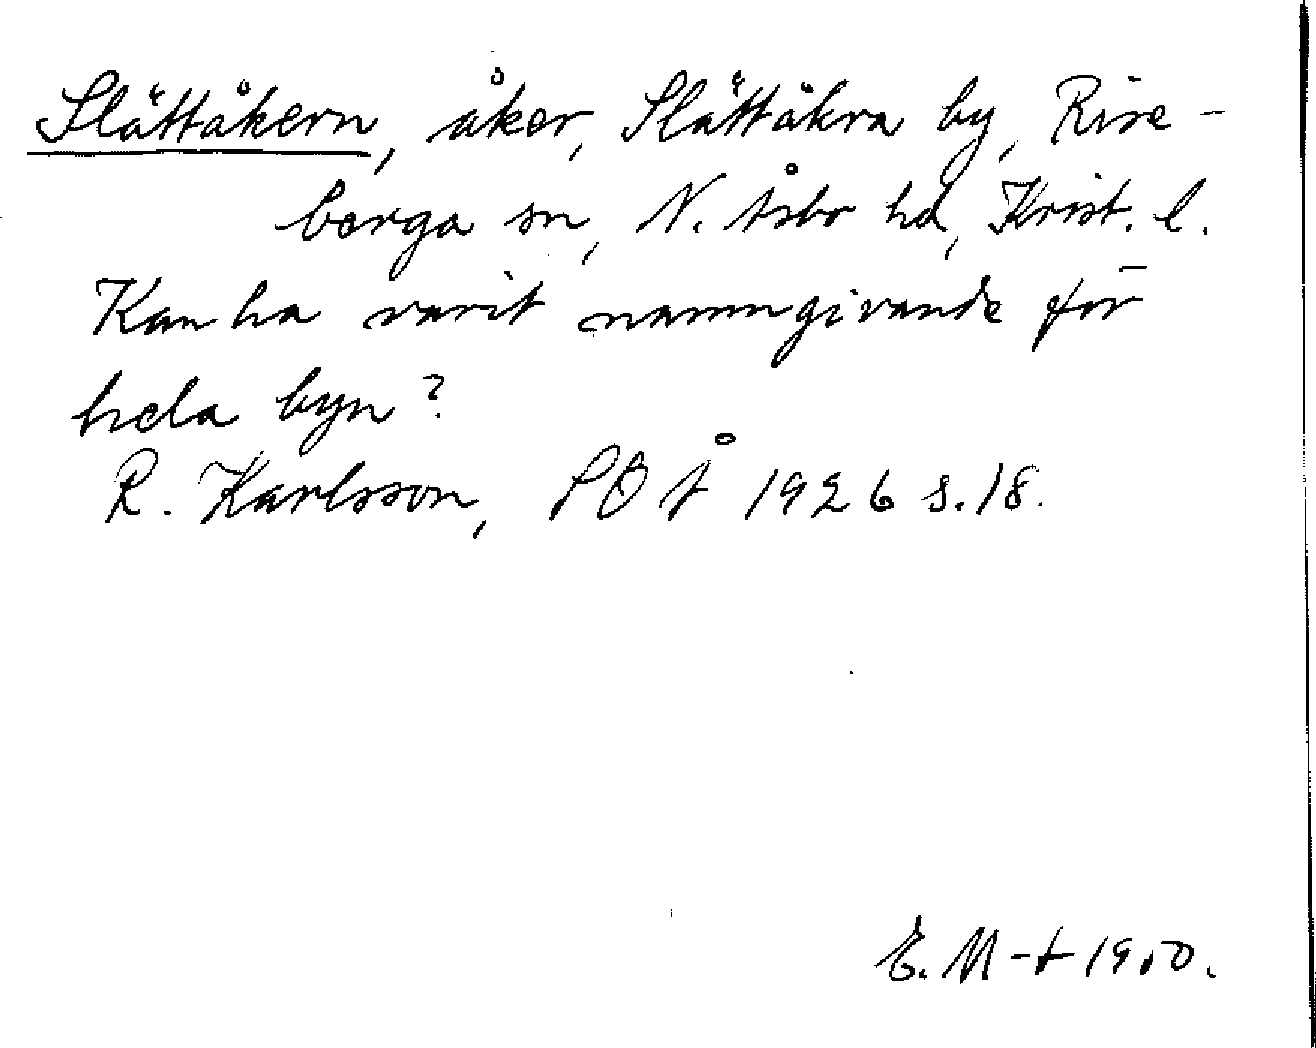 Slättåkern, åker, Slättåkra by, Rise-
berga sn, N. Åsbo hd, Krist. l.
Kan ha varit namngivande för
hela byn?
R. Karlsson, SOÅ 1926 s. 18.
E. M-t 1950.